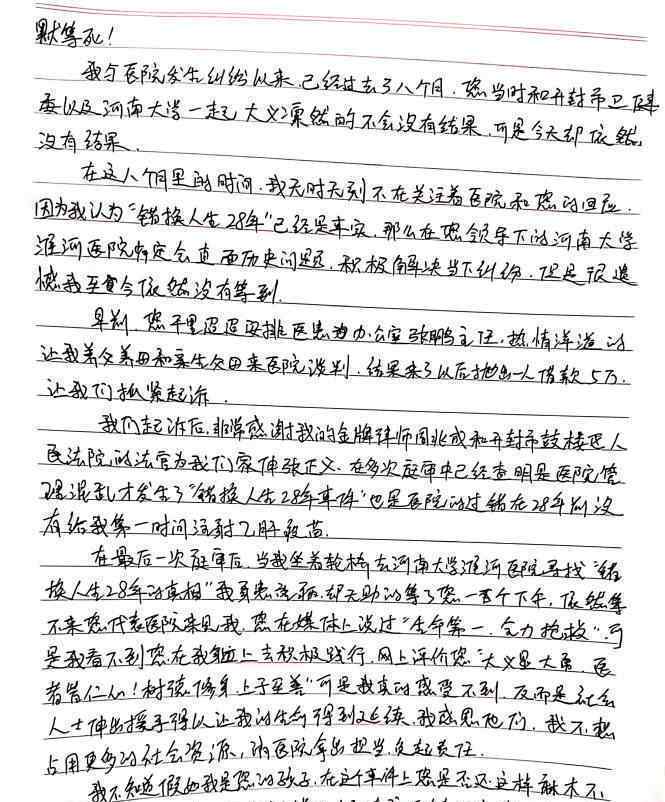 默等死！
我与医院发生纠纷以来，已经过去了八个月，您当时和开封市卫健
委以及河南大学一起大义凛然的不会没有结果，可是今天却依然
没有结果。
在这八个月里的时间，我无时无刻不在关注着医院和您的回应，
因为我认为“错换人生28年”已经是事实，那么在您领导下的河南大学
淮河医院肯定会直面历史问题，积极解决当下纠纷，但是很遗
憾我至今依然没有等到。
早前，您千里迢迢安排医患办公室张鹏主任，热情洋溢的
让我养父养母和亲生父母来医院谈判，结果来了以后抛出一人借款5万，
让我们抓紧起诉。
我们起诉后，非常感谢我的金牌律师周兆成和开封市鼓楼区人
民法院的法官为我们家伸张正义，在多次庭审中已经查明是医院管
理混乱才发生了“错换人生28年事件”也是医院的过错在28年前没
有给我第一时间注射乙肝疫苗。
在最后一次庭审后，当我坐着轮椅去河南大学淮河医院寻找“错
换人生28年的真相”我身患癌症，却无助的等了您一整个下午，依然等
不来您代表医院来见我，您在媒体上说过“生命第一，全力抢救”，可
是我看不到您在我身上去积极践行，网上评价您“大义显大勇，医
者皆仁心！树德修身，上于至善”可是我真的感受不到，反而是社会
人士伸出援手得以让我的生命得到延续，我感恩他们，我不想
占用更多的社会资源，请医院拿出担当，负起责任。
我不知道假如我是您的孩子，在这个事件上您是否还这样麻木不